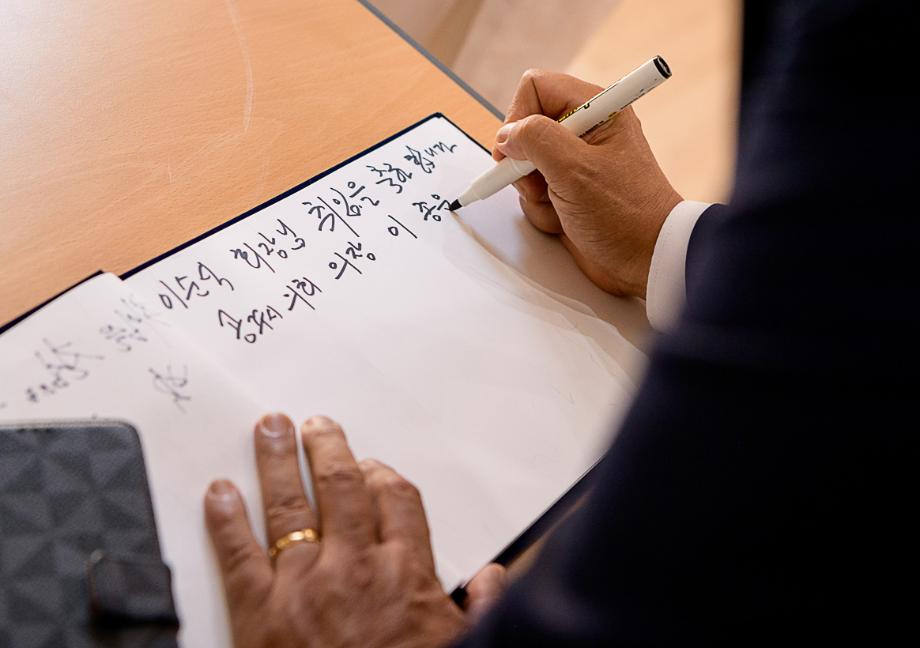 이순옥 회장님 취임을 축하합니다
공주시의회 의장 이 종운